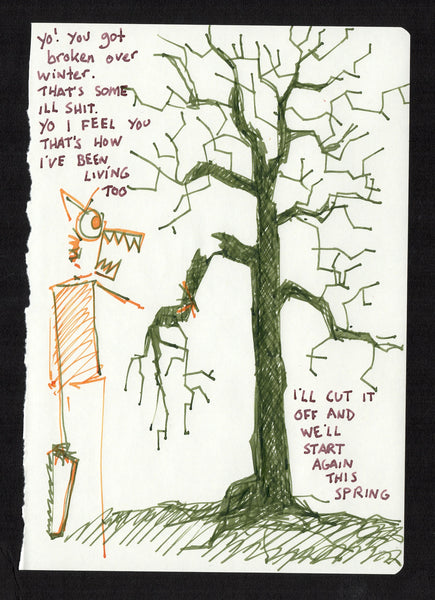 YO! YOU GOT
BROKEN OVER
WINTER.
THAT'S SOME
ILL SHIT.
YO I FEEL YOU
THAT'S HOW
I'VE BEEN
LIVING
TOO
I'LL CUT IT
OFF AND
WE'LL
START
AGAIN
THIS
SPRING